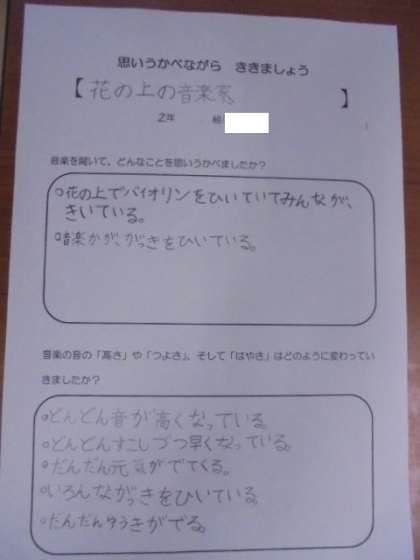 思いうかべながら ききましょう
【花の上の音楽家】
2年 組
音楽を聞いて、どんなことを思いうかべましたか？
○花の上でバイオリンをひいていてみんなが、
きいている。
○音楽かが、がっきをひいている。
音楽の音の「高さ」や「つよさ」、そして「はやさ」はどのように変わってい
きましたか？
○どんどん音が高くなっている
○どんどんすこしづつ早くなっている。
○だんだん元気がでてくる。
○いろんながっきをひいている。
○だんだんゆうきがでる。